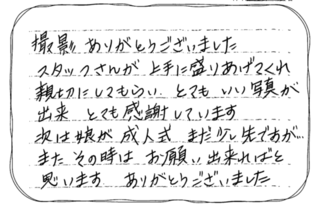 撮影 ありがとうございました
スタッフさんが 上手に盛りあげてくれ
親切にしてもらい とても いい写真が
出来 とても感謝しています
次は娘が 成人式 まだ少し先ですが…
また その時は お願い出来ればと
思います ありがとうございました